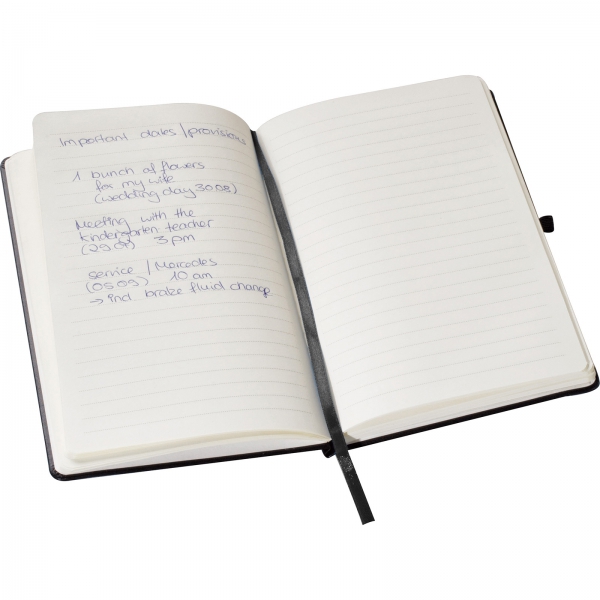 Important dates | provisions
1 bunch of flowers
for my wife
(wedding day 30.08)
Meeting with the
kindergarten teacher
(29.09) 3 pm
service | Mercedes
(05.09) 10 am
→ incl. brake fluid change